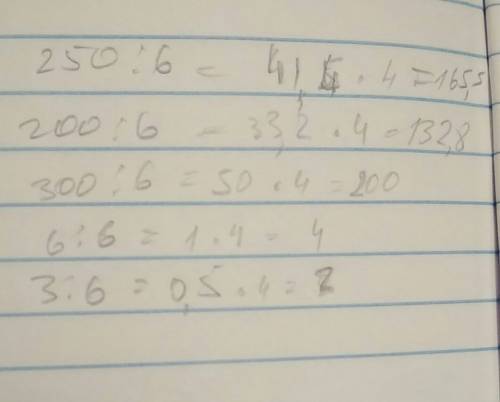 250:6 = 41,4 · 4 = 165,5
200:6 = 33,2 · 4 = 132,8
300:6 = 50 · 4 = 200
6:6 = 1 · 4 = 4
3:6 = 0,5 · 4 = 2